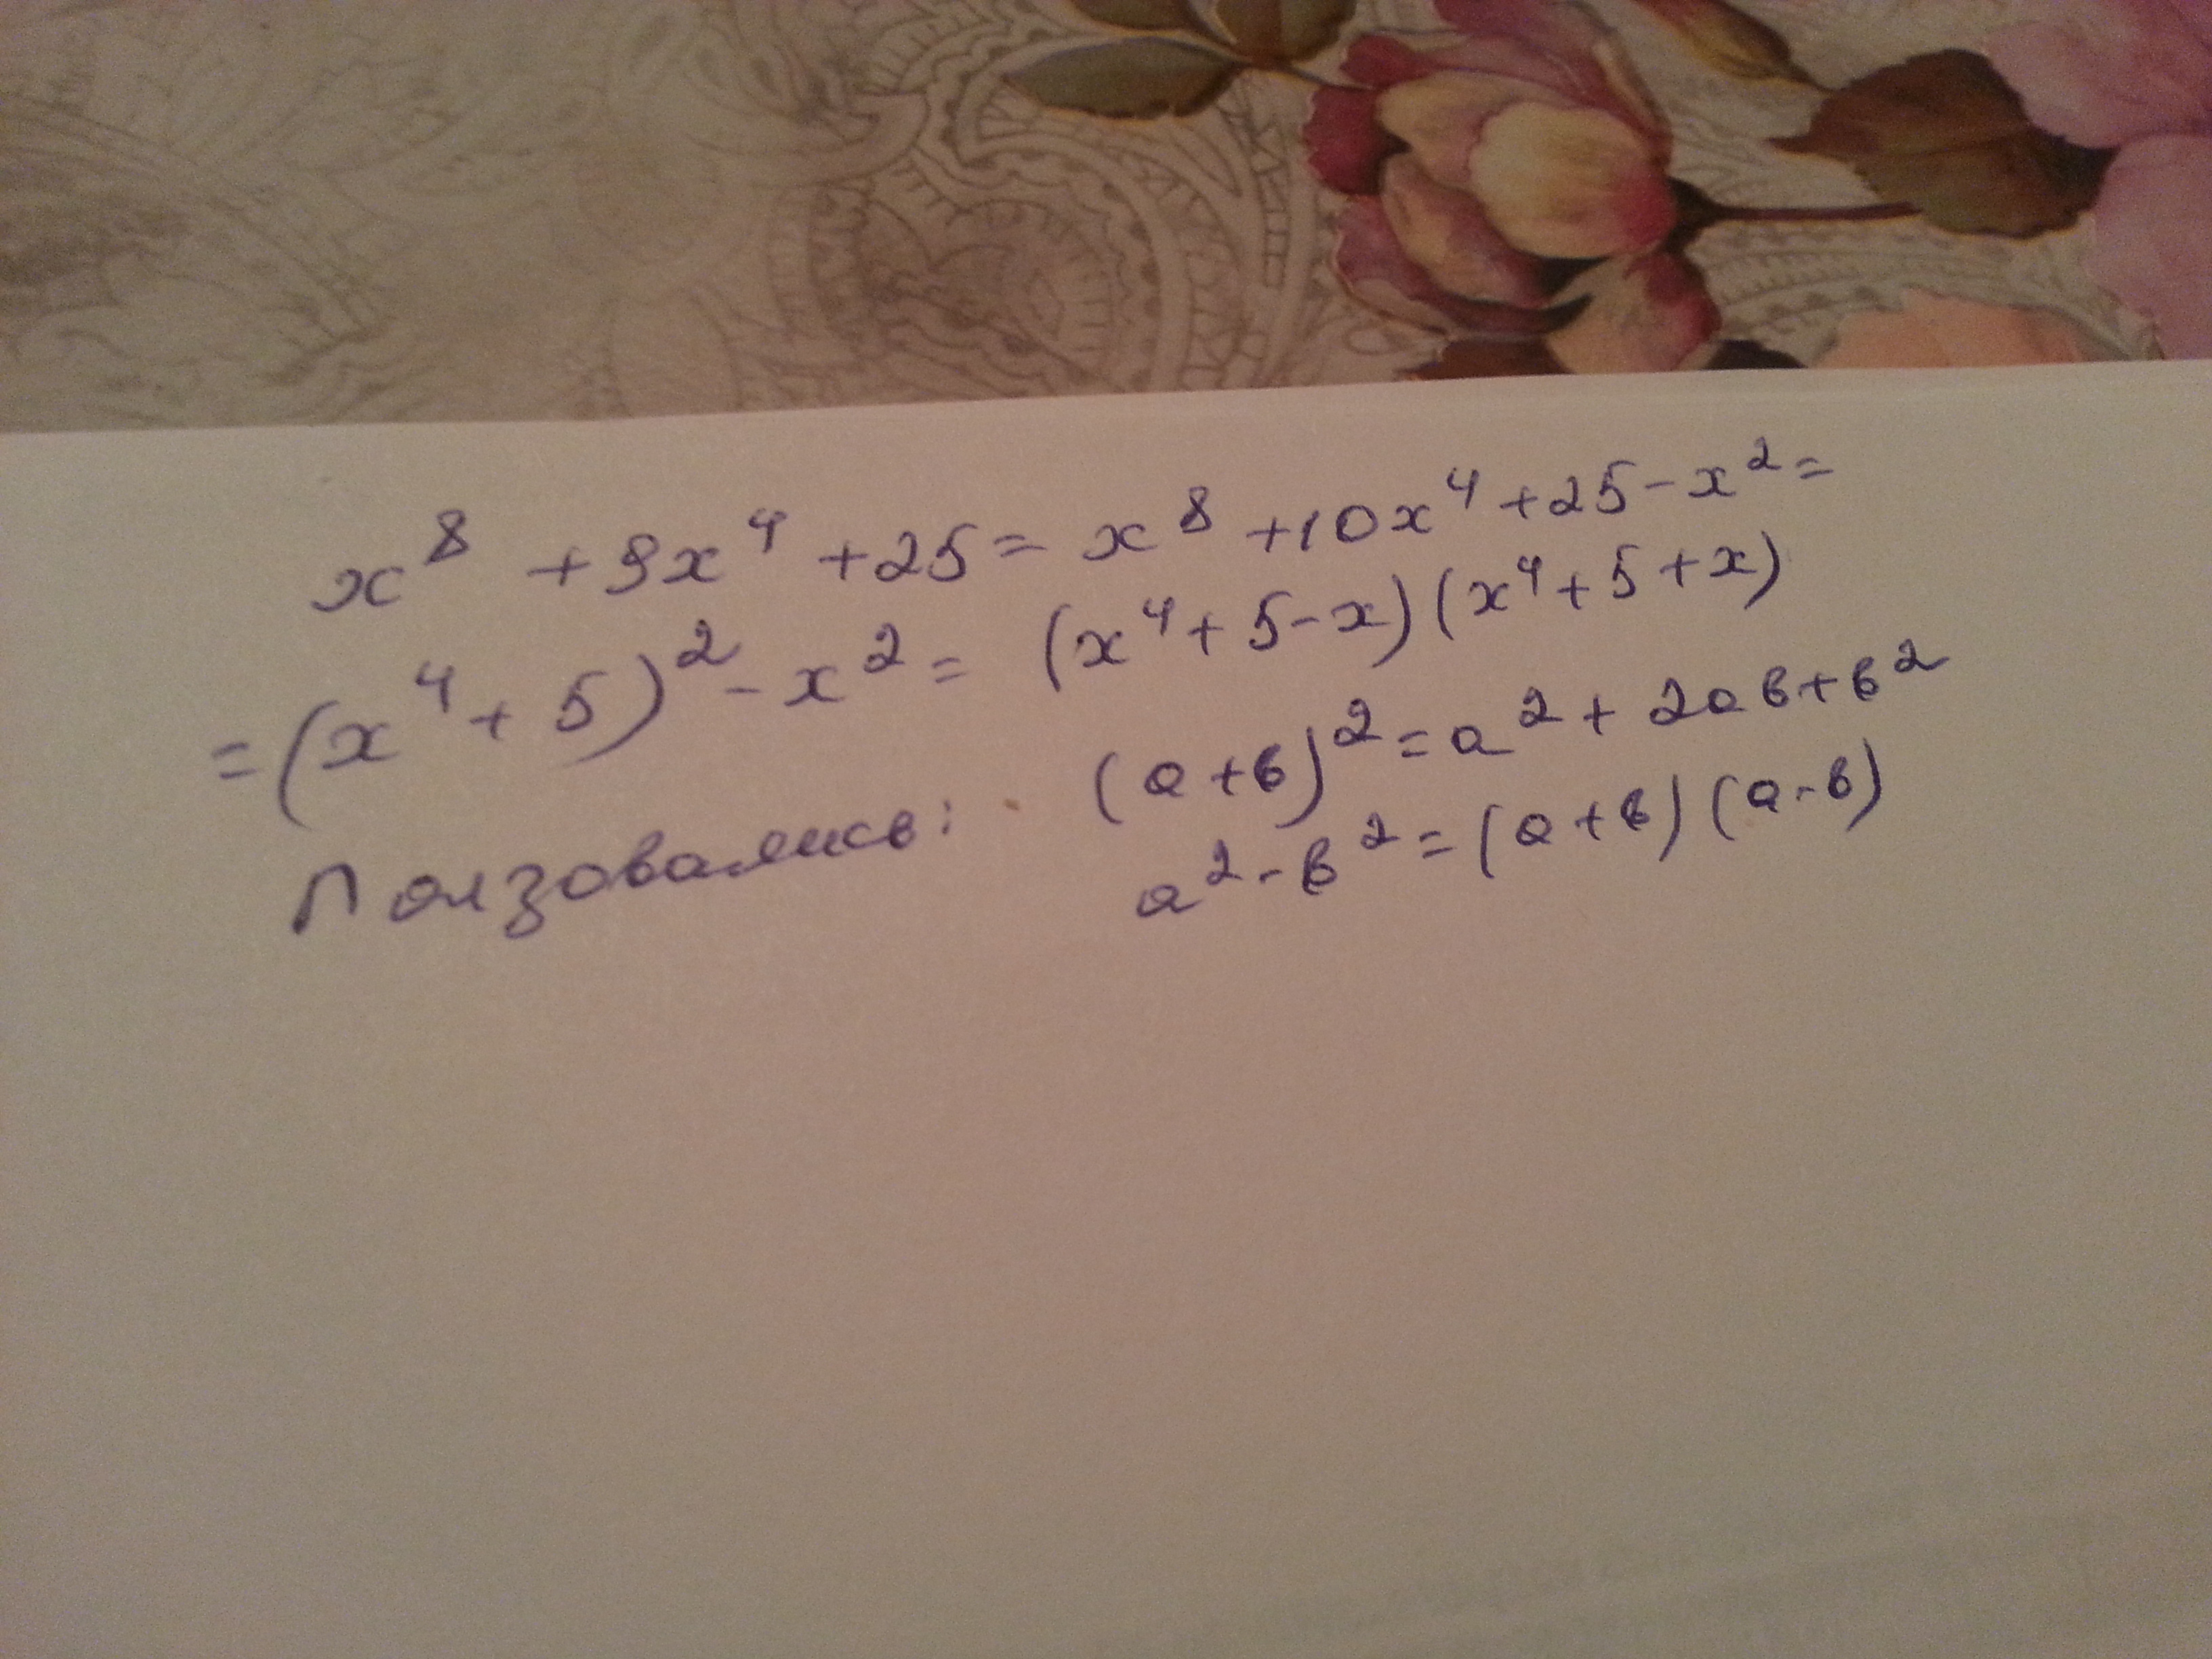 x⁸ + 9x⁴ + 25 = x⁸ + 10x⁴ + 25 - x² =
= (x⁴ + 5)² - x² = (x⁴ + 5 - x) (x⁴ + 5 + x)
Ползовались: (a + в)² = a² + 2aв + в²
a² - в² = (a + в) (a - в)